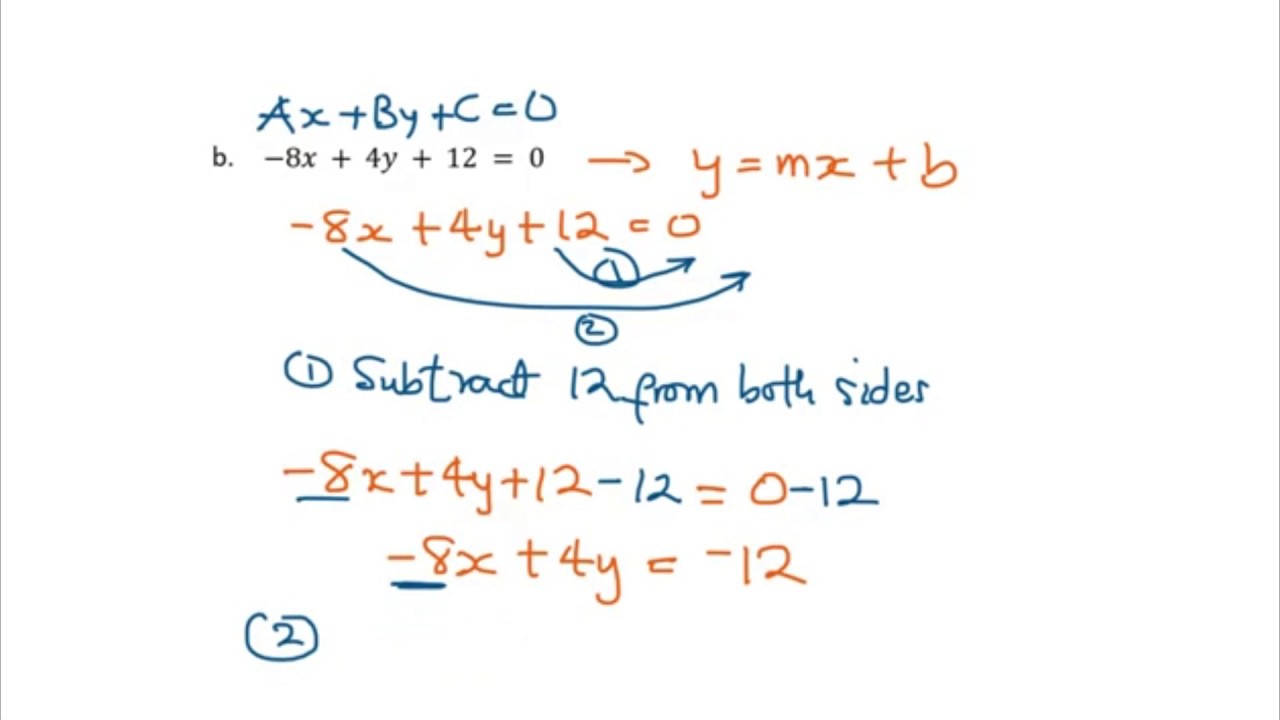 Ax + By + C = 0
b. −8x + 4y + 12 = 0 → y = mx + b
-8x + 4y + 12 = 0
①
②
① Subtract 12 from both sides
-8x + 4y + 12 - 12 = 0 - 12
-8x + 4y = -12
②